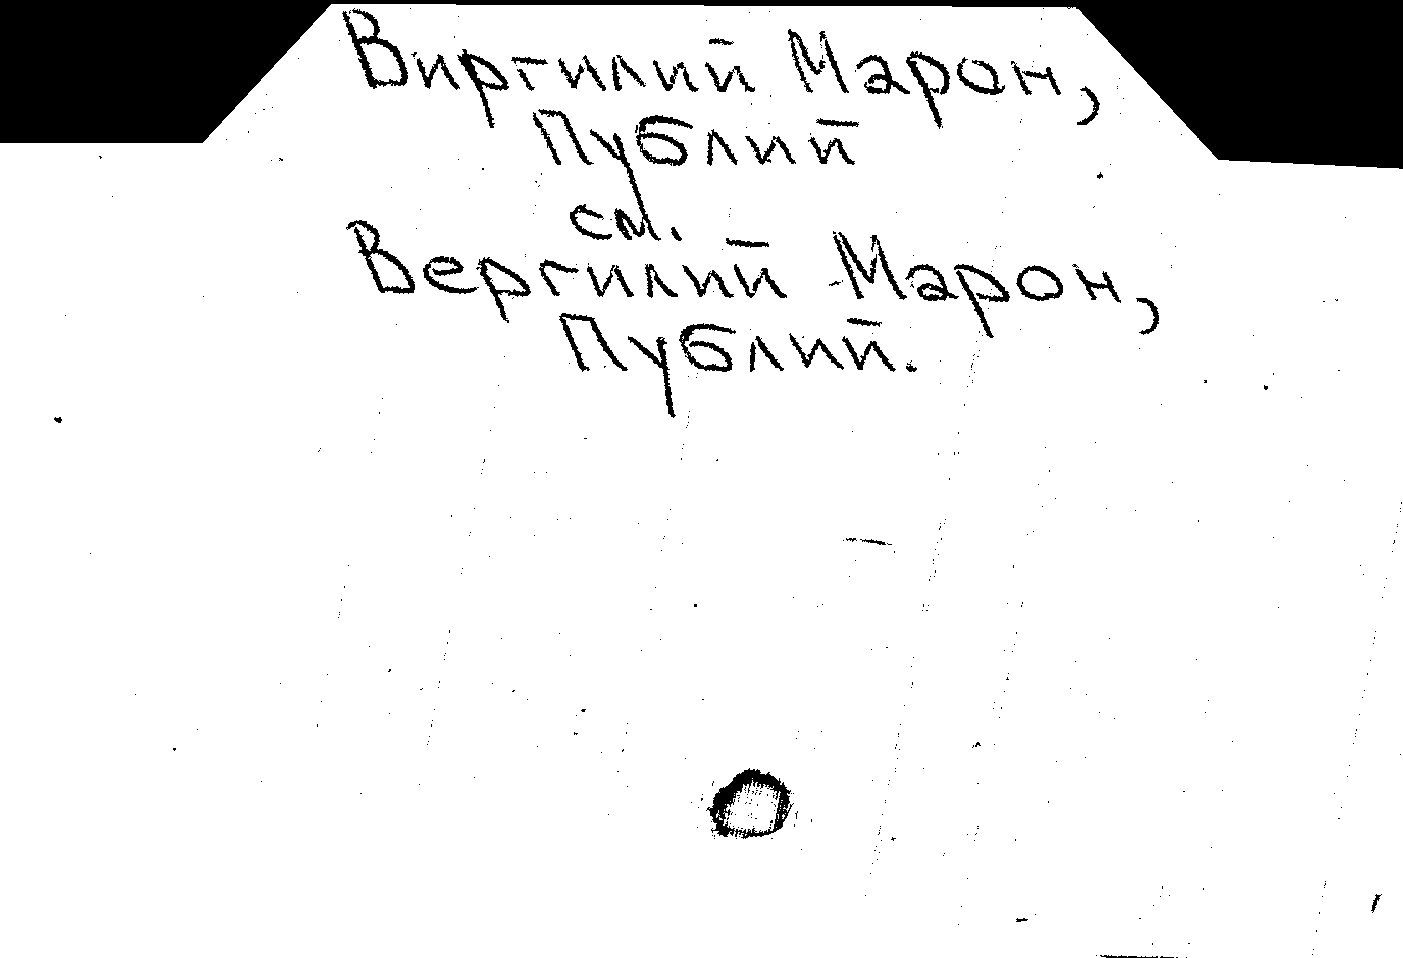 Виргилий Марон,
Публий
см.
Вергилий Марон,
Публий.